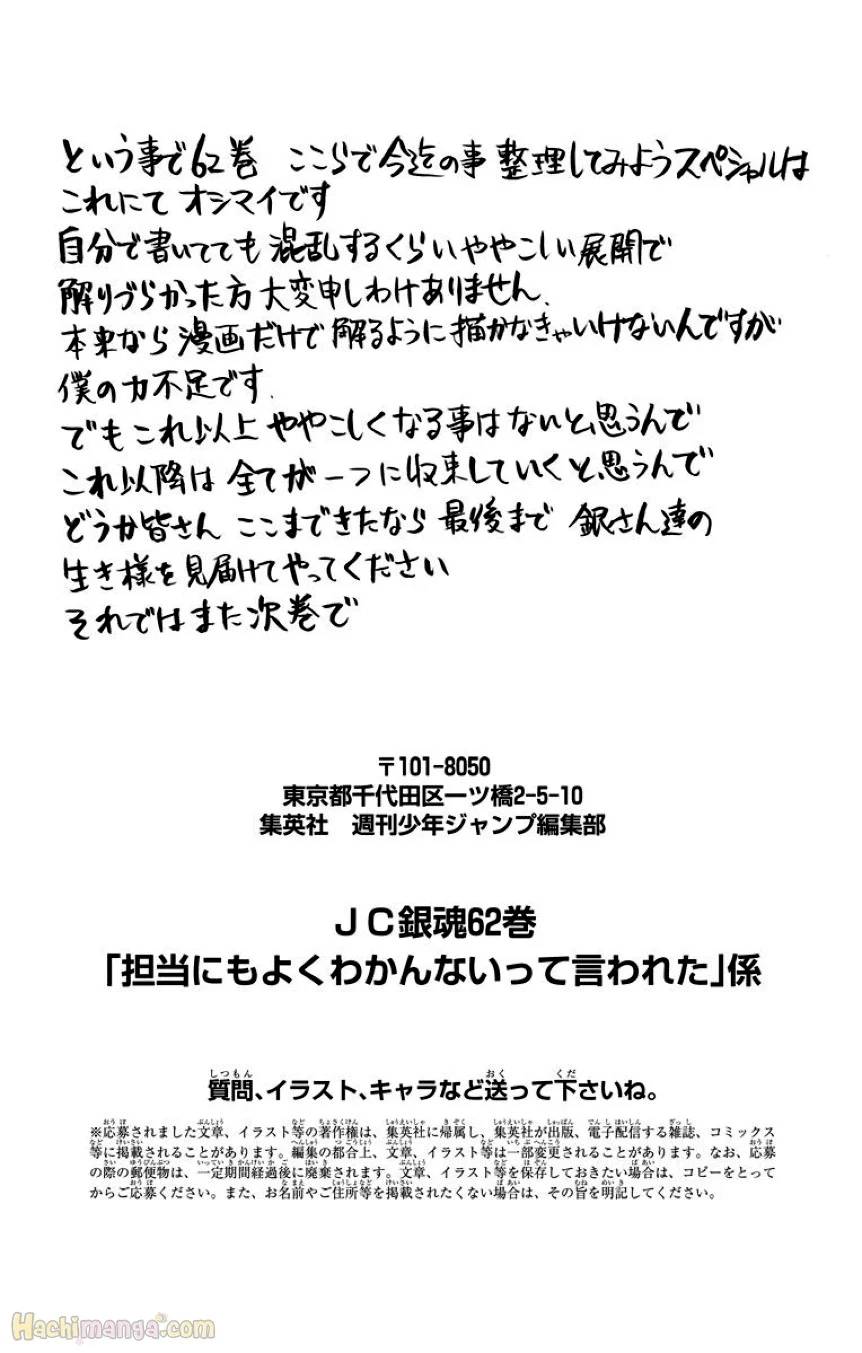 という事で62巻 ここらで今迄の事 整理してみようスペシャルは
これにて オシマイです
自分で書いてても 混乱するくらいややこしい展開で
解りづらかった方 大変申しわけありません、
本来なら 漫画だけで 解るように描かなきゃいけないんですが
僕の力不足です.
でもこれ以上 ややこしくなる事はないと思うんで
これ以降は 全てが一つに収束していくと思うんで
どうか皆さん ここまできたなら 最後まで 銀さん達の
生き様を見届けてやってください
それではまた次巻で
〒101-8050
東京都千代田区一ツ橋2-5-10
集英社　週刊少年ジャンプ編集部
ＪＣ銀魂62巻
「担当にもよくわかんないって言われた」係
質問、イラスト、キャラなど送って下さいね。
※応募されました文章、イラスト等の著作権は、集英社に帰属し、集英社が出版、電子配信する雑誌、コミックス
等に掲載されることがあります。編集の都合上、文章、イラスト等は一部変更されることがあります。なお、応募
の際の郵便物は、一定期間経過後に廃棄されます。文章、イラスト等を保存しておきたい場合は、コピーをとって
からご応募ください。また、お名前やご住所等を掲載されたくない場合は、その旨を明記してください。
Hachimanga.com